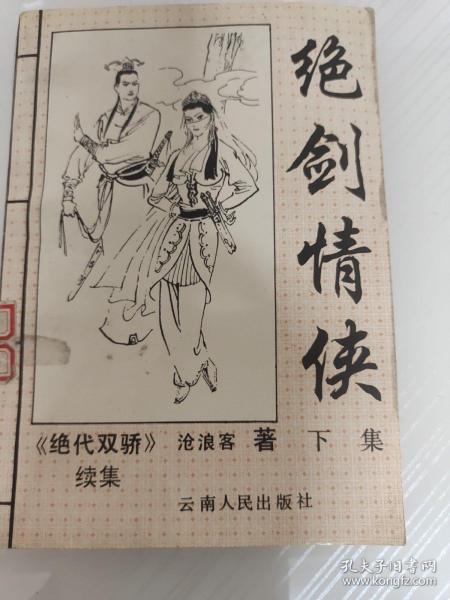 绝剑情侠
《绝代双骄》 沧浪客 著 下集
续集
云南人民出版社
孔夫子旧书网
www.kongfz.com